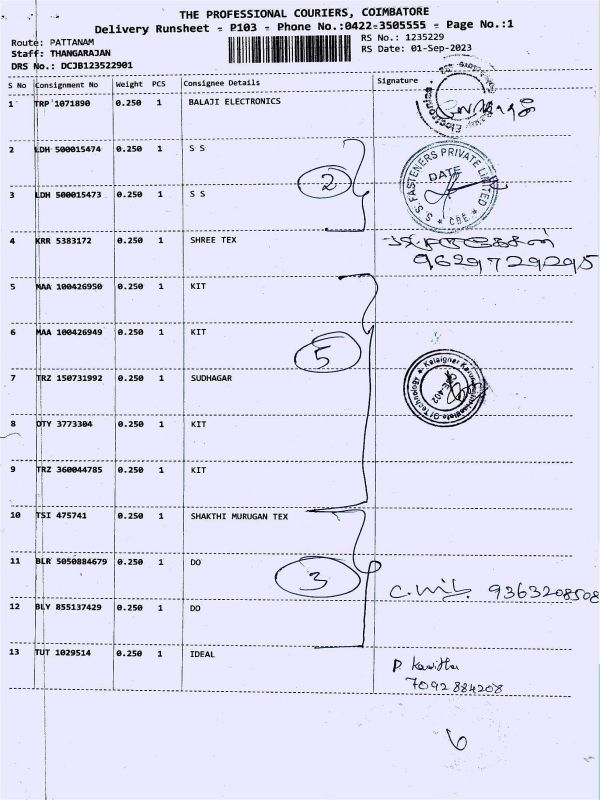 THE PROFESSIONAL COURIERS, COIMBATORE
Delivery Runsheet - P103 - Phone No.:0422-3505555 - Page No.:1
Route: PATTANAM
RS No.: 1235229
Staff: THANGARAJAN
RS Date: 01-Sep-2023
DRS No.: DCJB123522901
S No Consignment No Weight PCS Consignee Details Signature
1 TRP 1071890 0.250 1 BALAJI ELECTRONICS
2 LDH 500015474 0.250 1 S S
3 LDH 500015473 0.250 1 S S
2
S. S. FASTENERS PRIVATE LIMITED
DATE
* CBE *
4 KRR 5383172 0.250 1 SHREE TEX
9629729295
5 MAA 100426950 0.250 1 KIT
6 MAA 100426949 0.250 1 KIT
5
7 TRZ 150731992 0.250 1 SUDHAGAR
8 DTY 3773304 0.250 1 KIT
9 TRZ 360044785 0.250 1 KIT
10 TSI 475741 0.250 1 SHAKTHI MURUGAN TEX
11 BLR 5050884679 0.250 1 DO
3
9363208508
12 BLY 855137429 0.250 1 DO
13 TUT 1029514 0.250 1 IDEAL
P. Kavitha
7092884208
6